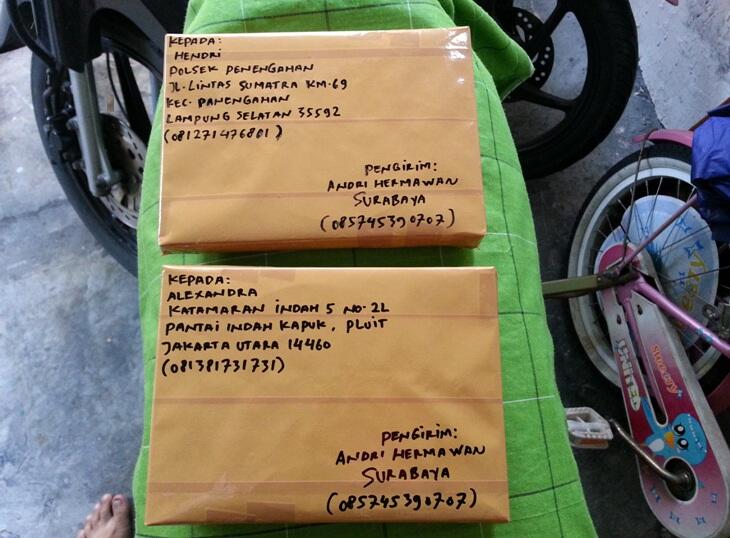 KEPADA:
HENDRI
POLSEK PENENGAHAN
JL. LINTAS SUMATRA KM-69
KEC. PANENGAHAN
LAMPUNG SELATAN 35592
(081271476801)
PENGIRIM:
ANDRI HERMAWAN
SURABAYA
(085745390707)
KEPADA:
ALEXANDRA
KATAMARAN INDAH 5 NO. 2L
PANTAI INDAH KAPUK, PLUIT
JAKARTA UTARA 14460
(081381731731)
PENGIRIM:
ANDRI HERMAWAN
SURABAYA
(085745390707)
UNITED